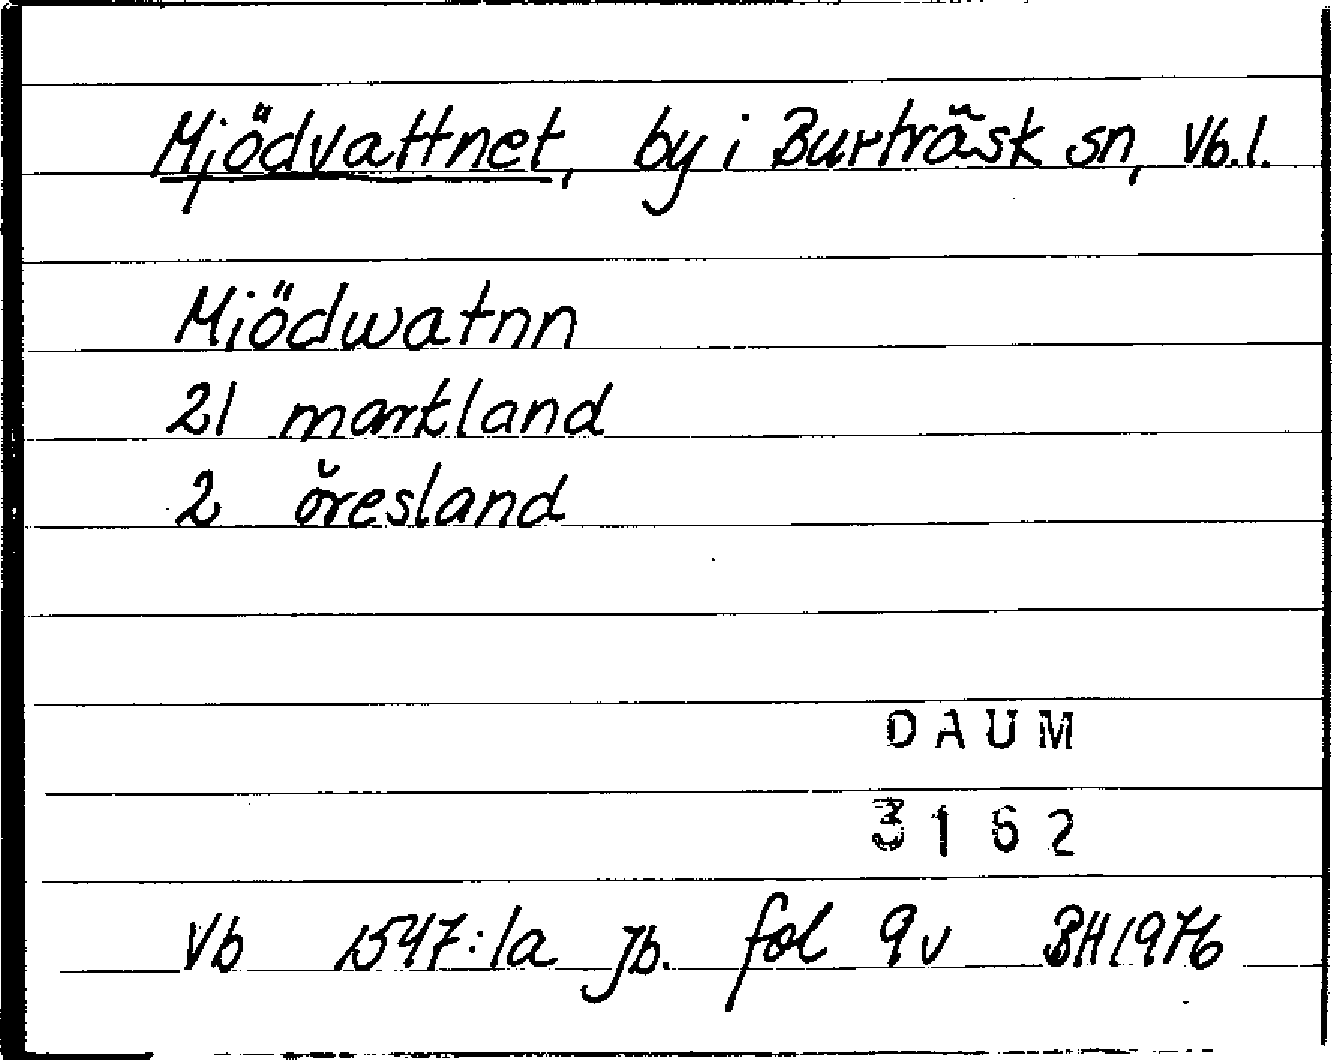 Mjödvattnet, by i Burträsk sn, Vb.l.
Miödwatnn
21 markland
2 öresland
DAUM
3162
Vb 1547:1a jb. fol 9v BH1976